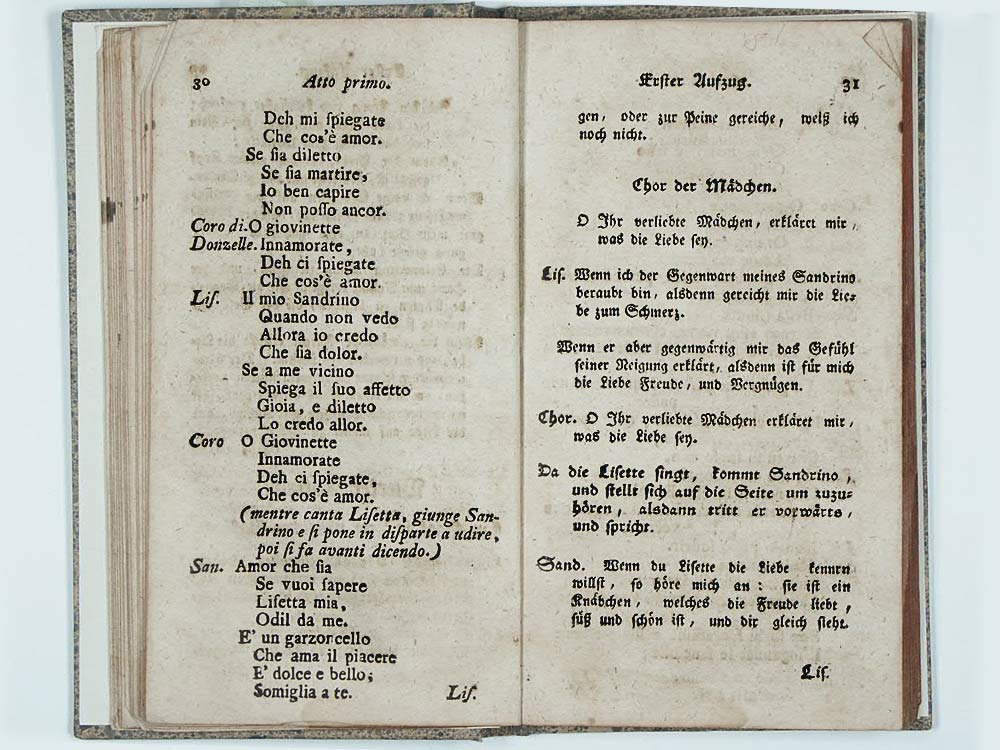 30 Atto primo.
Deh mi ſpiegate
Che cos'è amor.
Se ſia diletto
Se ſia martire,
Io ben capire
Non poſſo ancor.
Coro di. O giovinette
Donzelle. Innamorate,
Deh ci ſpiegate
Che cos'è amor.
Liſ. Il mio Sandrino
Quando non vedo
Allora io credo
Che ſia dolor.
Se a me vicino
Spiega il ſuo affetto
Gioia, e diletto
Lo credo allor.
Coro O Giovinette
Innamorate
Deh ci ſpiegate,
Che cos'è amor.
(mentre canta Liſetta, giunge San-
drino e ſi pone in diſparte a udire,
poi ſi fa avanti dicendo.)
San. Amor che ſia
Se vuoi ſapere
Liſetta mia,
Odil da me.
E' un garzoncello
Che ama il piacere
E' dolce e bello;
Somiglia a te.
Liſ.
Erſter Aufzug. 31
gen, oder zur Peine gereiche, weiß ich
noch nicht.
Chor der Mädchen.
O Ihr verliebte Mädchen, erkläret mir,
was die Liebe ſey.
Liſ. Wenn ich der Gegenwart meines Sandrino
beraubt bin, alsdenn gereicht mir die Lie-
be zum Schmerz.
Wenn er aber gegenwärtig mir das Gefühl
ſeiner Neigung erklärt, alsdenn iſt für mich
die Liebe Freude, und Vergnügen.
Chor. O Ihr verliebte Mädchen erkläret mir,
was die Liebe ſey.
Da die Liſette ſingt, kommt Sandrino,
und ſtellt ſich auf die Seite um zuzu-
hören, alsdann tritt er vorwärts,
und ſpricht.
Sand. Wenn du Liſette die Liebe kennen
willſt, ſo höre mich an: ſie iſt ein
Knäbchen, welches die Freude liebt,
ſüß und ſchön iſt, und dir gleich ſieht.
Liſ.